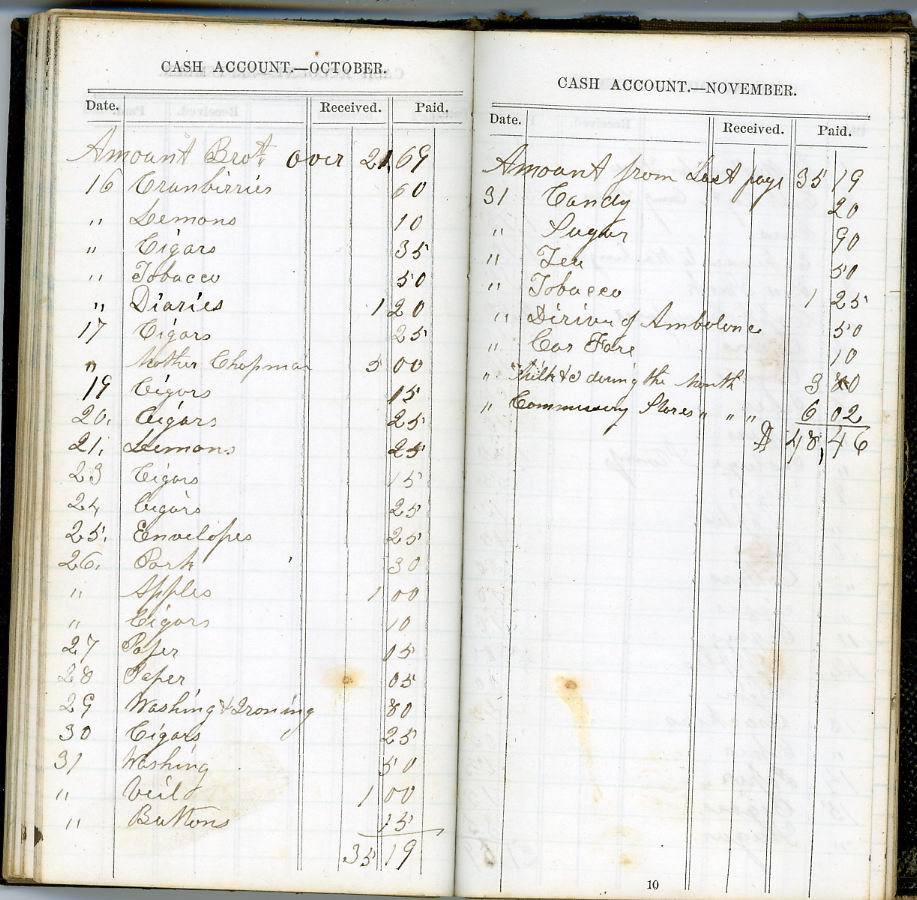 CASH ACCOUNT.—OCTOBER.
Date. Received. Paid.
Amount Brot over 21,69
16 Cranberries 60
" Lemons 10
" Cigars 35
" Tobacco 50
" Diaries 1 20
17 Cigars 25
" Mother Chapman 5 00
19 Cigars 15
20. Cigars 25
21. Lemons 25
23 Cigars 15
24 Cigars 25
25. Envelopes 25
26. Pork 30
" Apples 1 00
" Cigars 10
27 Paper 15
28 Paper 05
29 Washing & Ironing 80
30 Cigars 25
31 Washing 50
" Veil 1 00
" Buttons 15
35 19
CASH ACCOUNT.—NOVEMBER.
Date. Received. Paid.
Amount from Last page 35 19
31 Candy 20
" Sugar 90
" Tea 50
" Tobacco 1 25
" Driver of Ambulance 50
" Car Fare 10
" Milk &c during the Month 3 80
" Commissary Stores " " " 6 02
$ 48,46
10